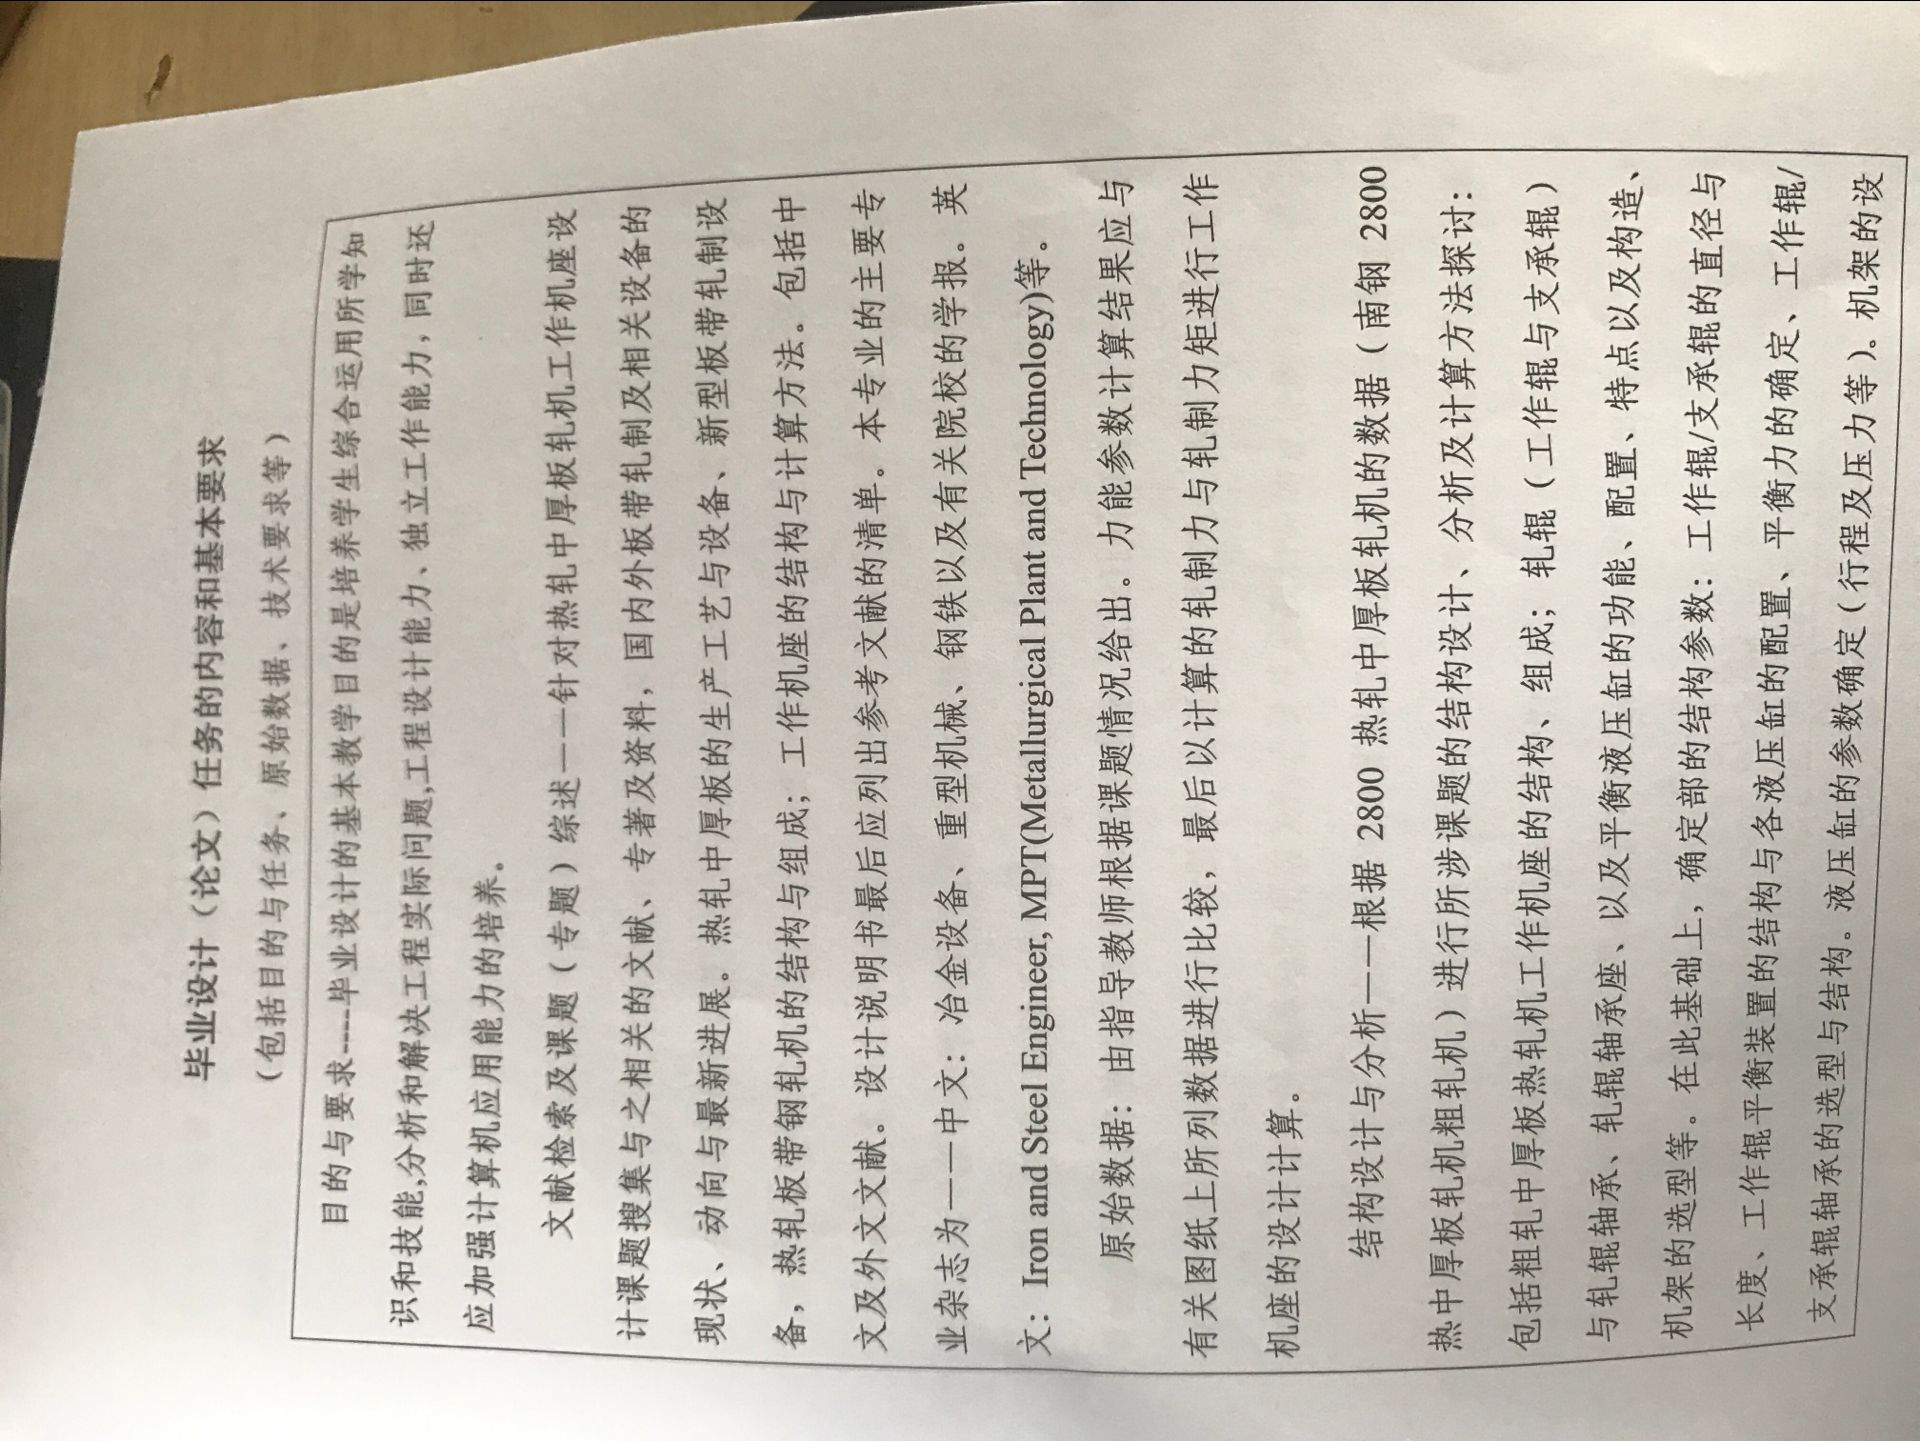 毕业设计（论文）任务的内容和基本要求
（包括目的与任务、原始数据、技术要求等）
目的与要求----毕业设计的基本教学目的是培养学生综合运用所学知
识和技能,分析和解决工程实际问题,工程设计能力、独立工作能力，同时还
应加强计算机应用能力的培养。
文献检索及课题（专题）综述——针对热轧中厚板轧机工作机座设
计课题搜集与之相关的文献、专著及资料，国内外板带轧制及相关设备的
现状、动向与最新进展。热轧中厚板的生产工艺与设备、新型板带轧制设
备，热轧板带钢轧机的结构与组成；工作机座的结构与计算方法。包括中
文及外文文献。设计说明书最后应列出参考文献的清单．本专业的主要专
业杂志为——中文：冶金设备、重型机械、钢铁以及有关院校的学报．英
文：Iron and Steel Engineer, MPT(Metallurgical Plant and Technology)等．
原始数据：由指导教师根据课题情况给出。力能参数计算结果应与
有关图纸上所列数据进行比较，最后以计算的轧制力与轧制力矩进行工作
机座的设计计算．
结构设计与分析——根据 2800 热轧中厚板轧机的数据（南钢 2800
热中厚板轧机粗轧机）进行所涉课题的结构设计、分析及计算方法探讨：
包括粗轧中厚板热轧机工作机座的结构、组成；轧辊（工作辊与支承辊）
与轧辊轴承、轧辊轴承座、以及平衡液压缸的功能、配置、特点以及构造、
机架的选型等．在此基础上，确定部的结构参数：工作辊/支承辊的直径与
长度、工作辊平衡装置的结构与各液压缸的配置、平衡力的确定、工作辊/
支承辊轴承的选型与结构．液压缸的参数确定（行程及压力等）。机架的设